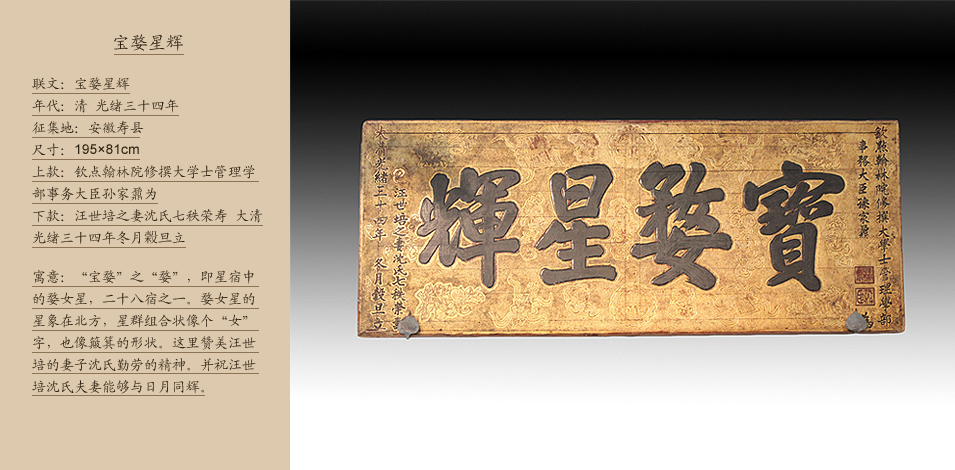 宝婺星辉
联文：宝婺星辉
年代：清 光绪三十四年
征集地：安徽寿县
尺寸：195×81cm
上款：钦点翰林院修撰大学士管理学
部事务大臣孙家鼐为
下款：汪世培之妻沈氏七秩荣寿 大清
光绪三十四年冬月榖旦立
寓意：“宝婺”之“婺”，即星宿中
的婺女星，二十八宿之一。婺女星的
星象在北方，星群组合状像个“女”
字，也像簸箕的形状。这里赞美汪世
培的妻子沈氏勤劳的精神。并祝汪世
培沈氏夫妻能够与日月同辉。
欽點翰林院修撰大學士管理學部
事務大臣孫家鼐
為
寶婺星輝
汪世培之妻沈氏七秩榮壽
大清光緒三十四年 冬月穀旦立